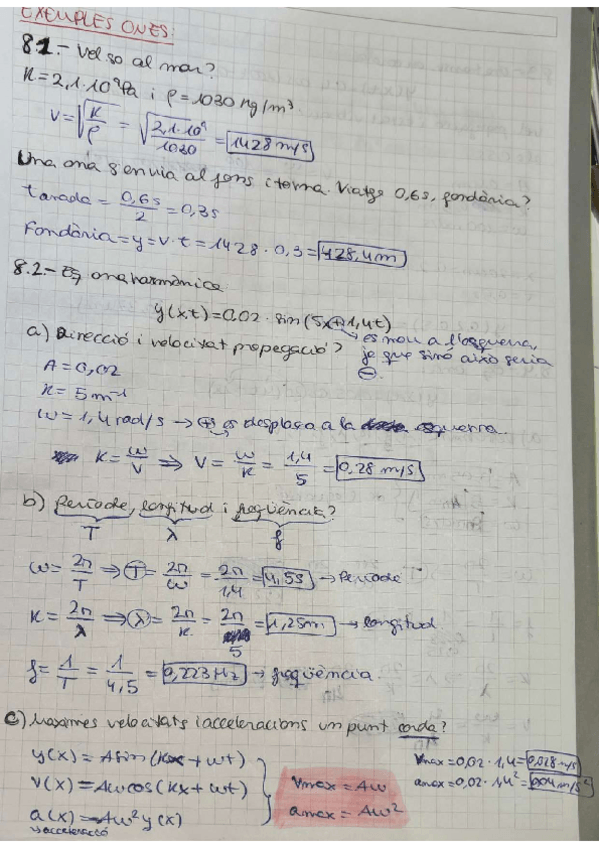 EXEMPLES ONES:
8.1.- Vel so al mar?
K = 2,1·10⁹Pa i ρ = 1030 kg/m³
V = √(K/ρ) = √(2,1·10⁹/1030) = 1428 m/s
Una ona s'envia al fons i torna. Viatge 0,6s, fondària?
tanada = 0,6s/2 = 0,3s
Fondària = y = v·t = 1428·0,3 = 428,4m
8.2.- Eq ona harmònica
y(x,t) = 0,02·sin(5x+1,4t)
a) Direcció i velocitat propagació?
→ es mou a l'esquerra,
ja que sinó això seria
⊖.
A = 0,02
K = 5 m⁻¹
ω = 1,4 rad/s → ⊕ es desplaça a la esquerra.
K = ω/V ⇒ V = ω/K = 1,4/5 = 0,28 m/s
b) Període, longitud i freqüència?
T λ f
ω = 2π/T ⇒ T = 2π/ω = 2π/1,4 = 4,5s → Període
K = 2π/λ ⇒ λ = 2π/K = 2π/5 = 1,25m → longitud
f = 1/T = 1/4,5 = 0,223Hz → freqüència.
c) Màximes velocitats i acceleracions un punt corda?
y(x) = A sin(Kx + ωt)
V(x) = Aω cos(Kx + ωt)
a(x) = -Aω² y(x)
→ acceleració
Vmax = Aω
amax = Aω²
Vmax = 0,02·1,4 = 0,028 m/s
amax = 0,02·1,4² = 0,04 m/s²